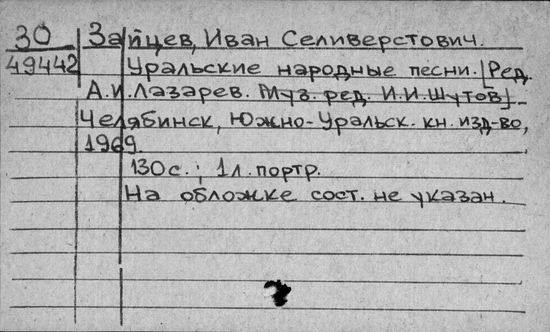 30
49442
Зайцев, Иван Селиверстович.
Уральские народные песни. [Ред.
А.И. Лазарев. Муз. ред. И.И. Шутов].
Челябинск, Южно-Уральск. кн. изд-во,
1969.
130 с.; 1 л. портр.
На обложке сост. не указан.